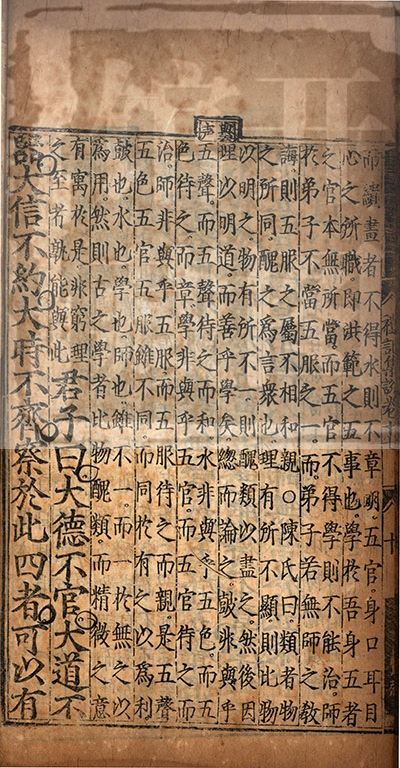 而繢畫者不得水則不章明五官身口耳目
心之所職即洪範之五事也學於吾身五者
之官本無所當而五官不得學則不能治師
於弟子不當五服之一而弟子若無師之教
誨則五服之屬不相和親○陳氏曰類者物
之所同醜之為言眾也理有所不顯則比物
以明之物有所不一則醜類以盡之然後因
理以明道而善乎學矣總而論之鼓非與乎
五聲而五聲待之而和水非與乎五色而五
色待之而章學非與乎五官而五官待之而
治師非與乎五服而五服待之而親是五聲
五色五官五服雖不同而同於有之以為利
鼓也水也學也師也雖不一而一於無之以
為用然則古之學者比物醜類而精微之意
有寓於是非窮理
之至者孰能與此
君子曰大德不官大道不
器大信不約大時不齊察於此四者可以有